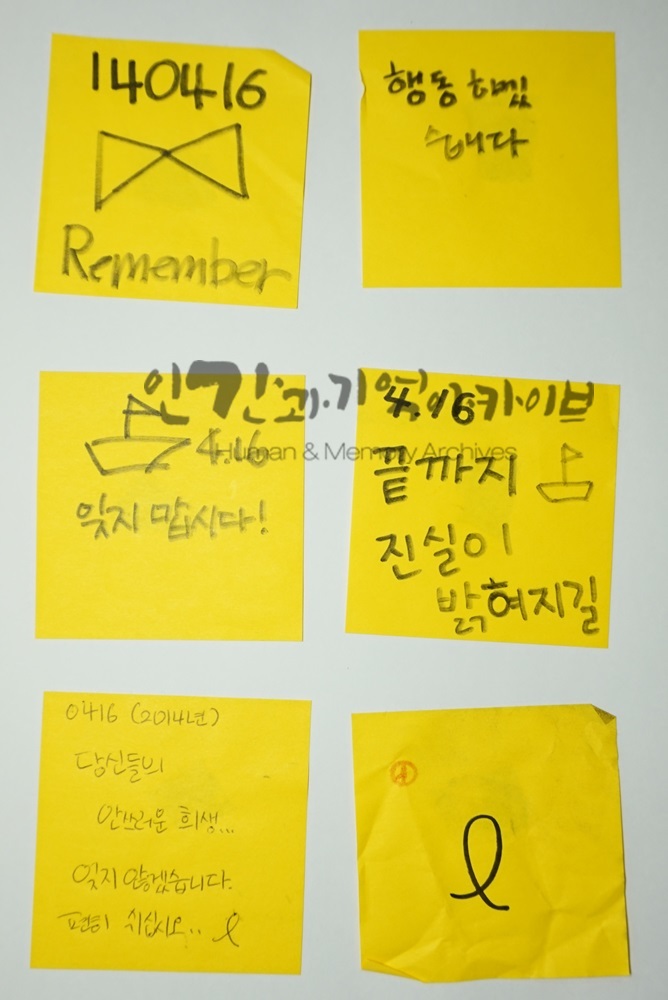 140416
Remember
행동 하겠
습니다
인간과 기억 아카이브
Human & Memory Archives
4.16
잊지 맙시다!
4.16
끝까지
진실이
밝혀지길
0416 (2014년)
당신들의
안쓰러운 희생...
잊지 않겠습니다.
편히 쉬십시오..